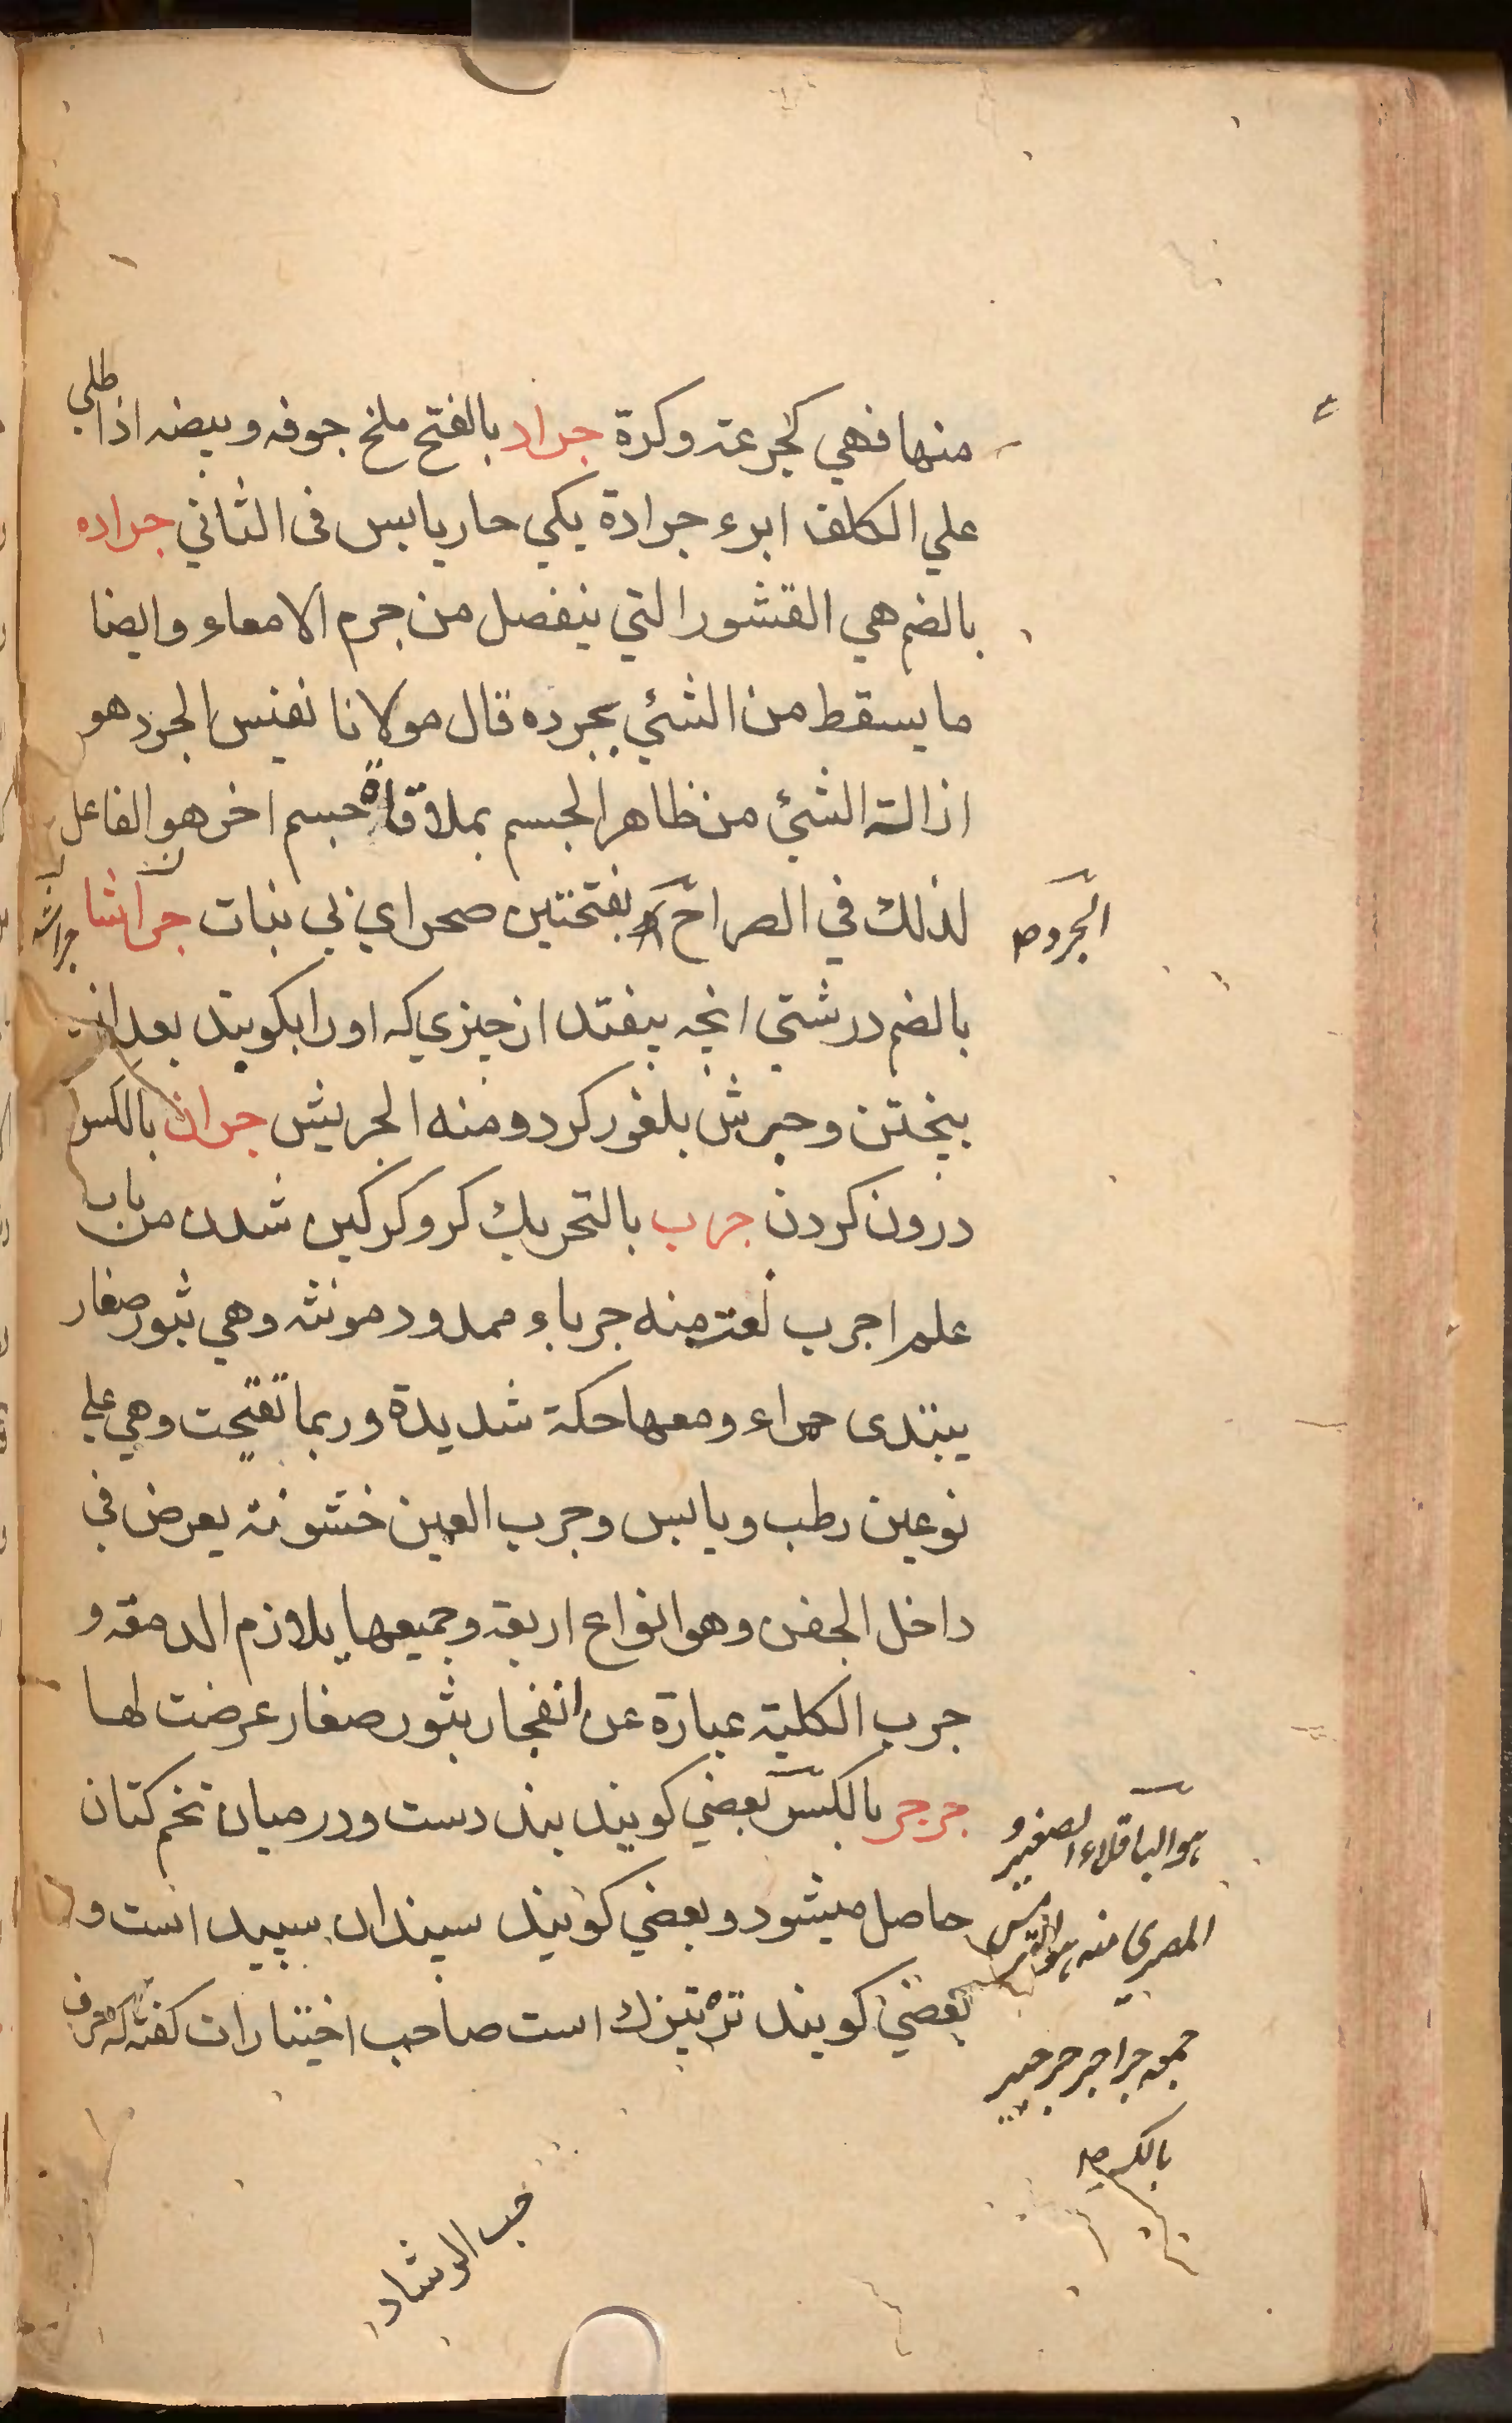 منها فهي كجرعته وكرة جراد بالفتح ملخ جوفه وبيضه اذا طلي
علي الكلف ابرء جرادة يكي حار يابس فى الثاني جراده
بالضم هي القشور التي ينفصل من جرم الامعاء وايضا
ما يسقط من الشئي بجرده قال مولانا نفيس الجرد هو
ازالته الشئ من ظاهر الجسم بملاقاة جسم اخر هو الفاعل
لذلك في الصراح بفتحتين صحراي بي نبات جراشا
جراشه
الجرد صح
بالضم درشتي انچه بيفتد از چيزي كه اورا بكوبند بعد از
بيختن وجرش بلغور كردو منه الجريش جران بالكسر
درون كردن جرب بالتحريك كر وكركين شدن من باب
علم اجرب نعت منه جرباء ممدود مونثه وهي بثور صغار
يبتدى حمراء ومعها حكة شديدة وربما تقيحت وهي علي
نوعين رطب ويابس وجرب العين خشونته يعرض في
داخل الجفن وهو انواع اربعة وجميعها يلازم الدمعة و
جرب الكلية عبارة عن انفجار بثور صغار عرضت لها
جرجر بالكسر بعضي كويند بند دست ودر ميان تخم كتان
حاصل ميشود وبعضي كويند سيندان سپيد است و
بعضي كويند تره تيزك است صاحب اختيارات كفته كه حرف
هو الباقلاء الصغير و
المصري منه هو الترمس
جمعه جراجر جرجير
بالكسر صح
حب الرشاد